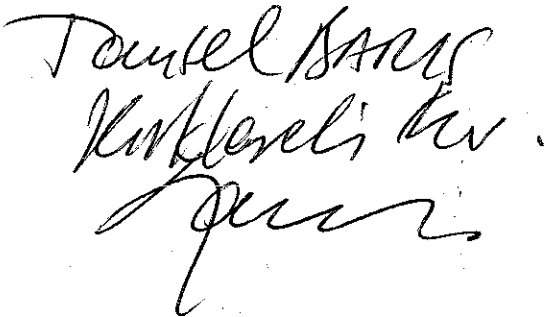 Tansel BARIŞ
Kırklareli Mv.